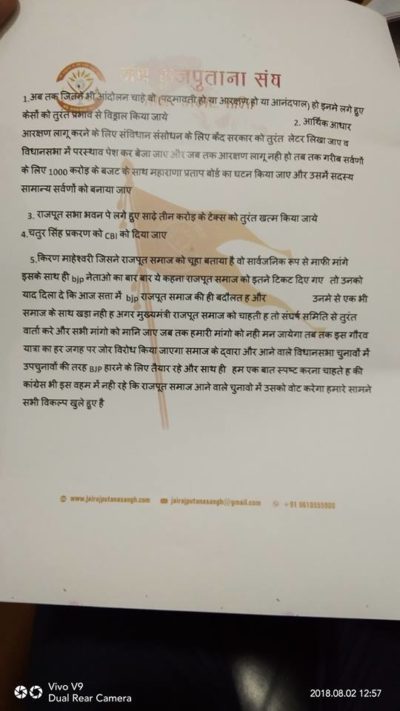 जय राजपुताना संघ
1.अब तक जितने भी आंदोलन चाहे वो (पदमावती हो या आरक्षण हो या आनंदपाल) हो इनमे लगे हुए
केसों को तुरंत प्रभाव से विड्राल किया जाये 2. आर्थिक आधार
आरक्षण लागू करने के लिए संविधान संसोधन के लिए केंद सरकार को तुरंत लेटर लिखा जाए व
विधानसभा में परस्थाव पेश कर बेजा जाए और जब तक आरक्षण लागू नही हो तब तक गरीब सर्वणों
के लिए 1000 करोड़ के बजट के साथ महाराणा प्रताप बोर्ड का घटन किया जाए और उसमें सदस्य
सामान्य सर्वणों को बनाया जाए
3. राजपूत सभा भवन पे लगे हुए साढ़े तीन करोड़ के टेक्स को तुरंत खत्म किया जाये
4.चतुर सिंह प्रकरण को CBI को दिया जाए
5.किरण माहेश्वरी जिसने राजपूत समाज को चूहा बताया है वो सार्वजनिक रूप से माफी मांगे
इसके साथ ही bjp नेताओ का बार बार ये कहना राजपूत समाज को इतने टिकट दिए गए तो उनको
याद दिला दे कि आज सत्ता में bjp राजपूत समाज की ही बदौलत ह और उनमे से एक भी
समाज के साथ खड़ा नही ह अगर मुख्यमंत्री राजपूत समाज को चाहती ह तो संघर्ष समिति से तुरंत
वार्ता करे और सभी मांगो को मानि जाए जब तक हमारी मांगो को नही मन जायेगा तब तक इस गौरव
यात्रा का हर जगह पर जोर विरोध किया जाएगा समाज के द्वारा और आने वाले विधानसभा चुनावों में
उपचुनावों की तरह BJP हारने के लिए तैयार रहे और साथ ही हम एक बात स्पष्ट करना चाहते ह की
कांग्रेस भी इस वहम में नही रहे कि राजपूत समाज आने वाले चुनावो में उसको वोट करेगा हमारे सामने
सभी विकल्प खुले हुए है
www.jairajputanasangh.com jairajputanasangh@gmail.com
Vivo V9
Dual Rear Camera
2018.08.02 12:57